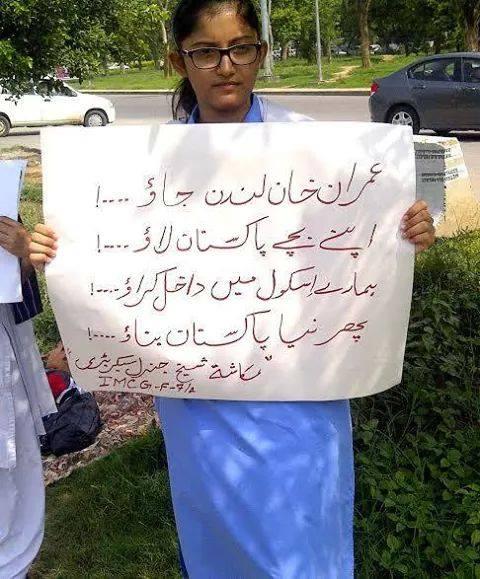 عمران خان لندن جاؤ ....!
اپنے بچے پاکستان لاؤ ....!
ہمارے اسکول میں داخل کراؤ ....!
پھر نیا پاکستان بناؤ ....!
شیخ جنرل سیکریٹری"
IMCG-F-7/2